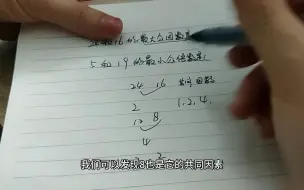 和16的最大公因数是
5和19的最小公倍数是
24 16 共同因数
2 1、2、4、
12 8
4
2
我们可以发现8也是它的共同因素